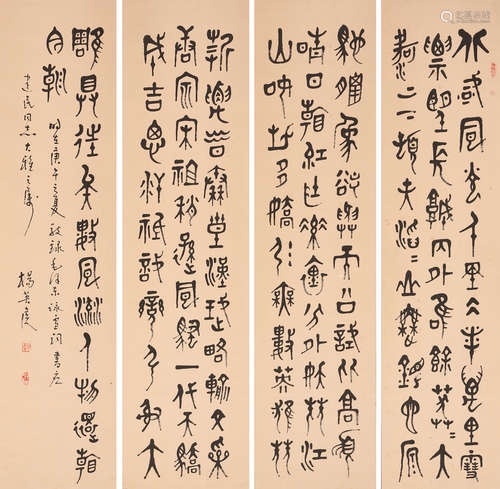 北國風光千里冰封萬里雪
飄望長城內外惟餘莽莽大
河上下頓失滔滔山舞銀蛇原
馳蠟象欲與天公試比高須
晴日看紅裝素裹分外妖嬈江
山如此多嬌引無數英雄競
折腰昔秦皇漢武略輸文采
唐宗宋祖稍遜風騷一代天驕
成吉思汗祇識彎弓射大
雕俱往矣數風流人物還看
今朝 時在庚午之夏敬錄毛澤東詠雪詞書應
建民同志大雅之屬 楊